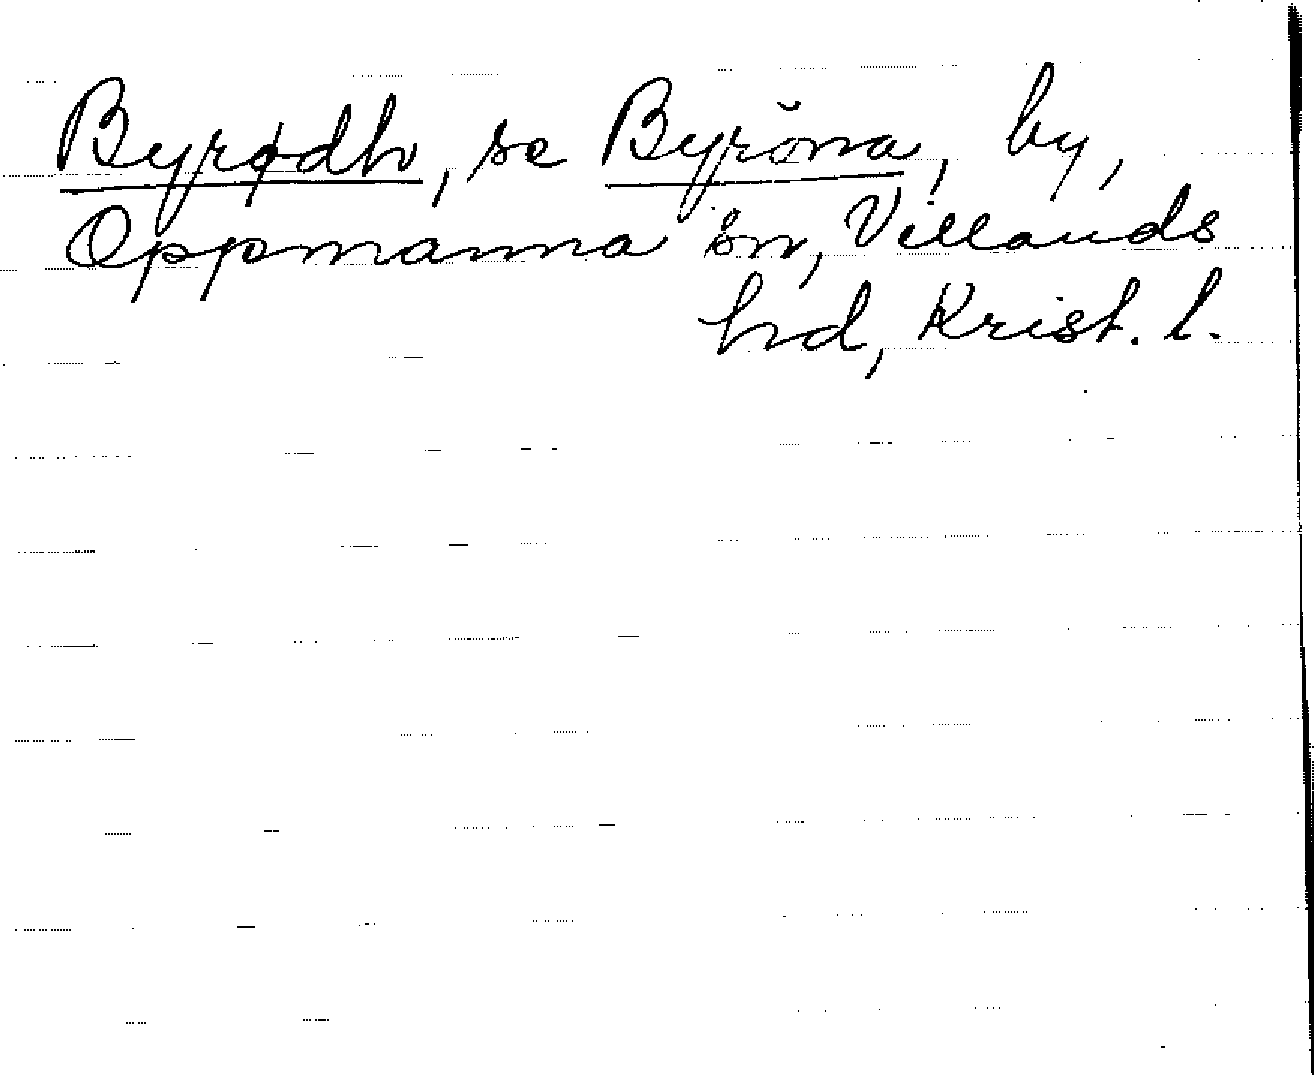 Byrødh, se Byröna, by,
Oppmanna sn, Villands
hd, Krist. l.